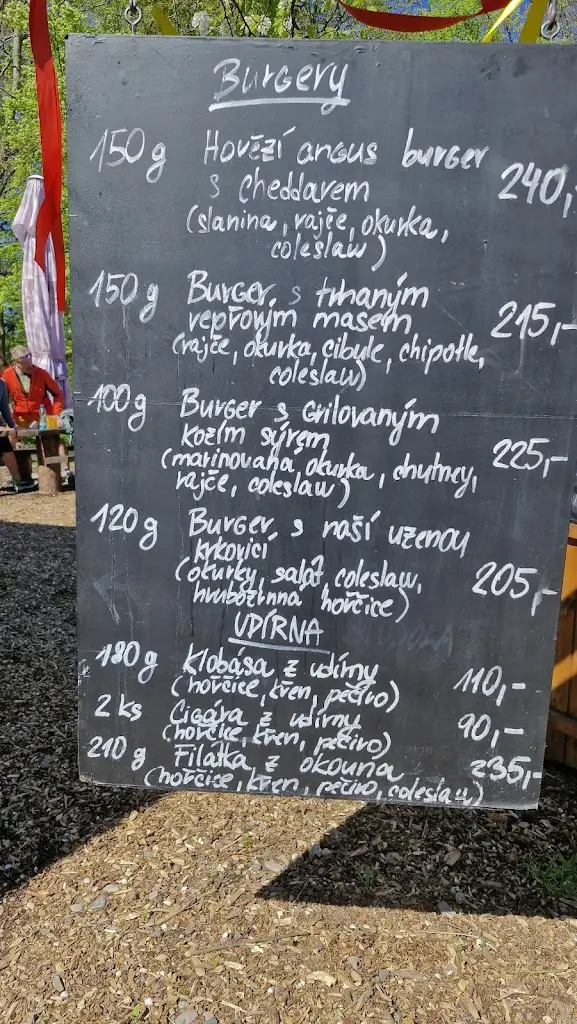 Burgery
150 g Hovězí angus burger
s cheddarem 240,-
(slanina, rajče, okurka,
coleslaw)
150 g Burger s trhaným
vepřovým masem 215,-
(rajče, okurka, cibule, chipotle,
coleslaw)
100 g Burger s grilovaným
kozím sýrem 225,-
(marinovaná okurka, chutney,
rajče, coleslaw)
120 g Burger s naší uzenou
krkovicí 205,-
(okurky, salát, coleslaw,
hrubozrnná hořčice)
UDÍRNA
180 g Klobása z udírny 110,-
(hořčice, křen, pečivo)
2 ks Cigára z udírny 90,-
(hořčice, křen, pečivo)
210 g Filátka z okouna 235,-
(hořčice, křen, pečivo, coleslaw)